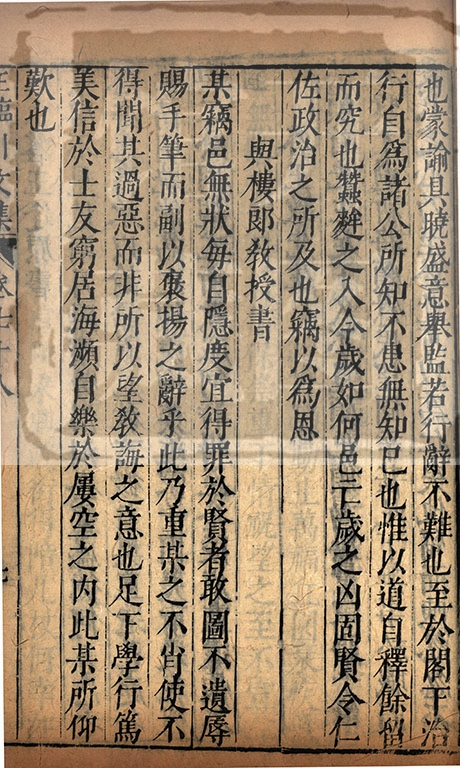 也蒙諭具曉盛意舉監若行辭不難也至於閣下治
行自為諸公所知不患無知已也惟以道自釋餘留
而究也蠶麰之入今歲如何邑三歲之凶固賢令仁
佐政治之所及也竊以為恩
與樓郎教授書
某竊邑無狀每自隱度宜得罪於賢者敢圖不遺辱
賜手筆而副以褒揚之辭乎此乃重某之不肖使不
得聞其過惡而非所以望敎誨之意也足下學行篤
美信於士友窮居海瀕自樂於屢空之內此某所仰
歎也
王臨川文集 卷七十八